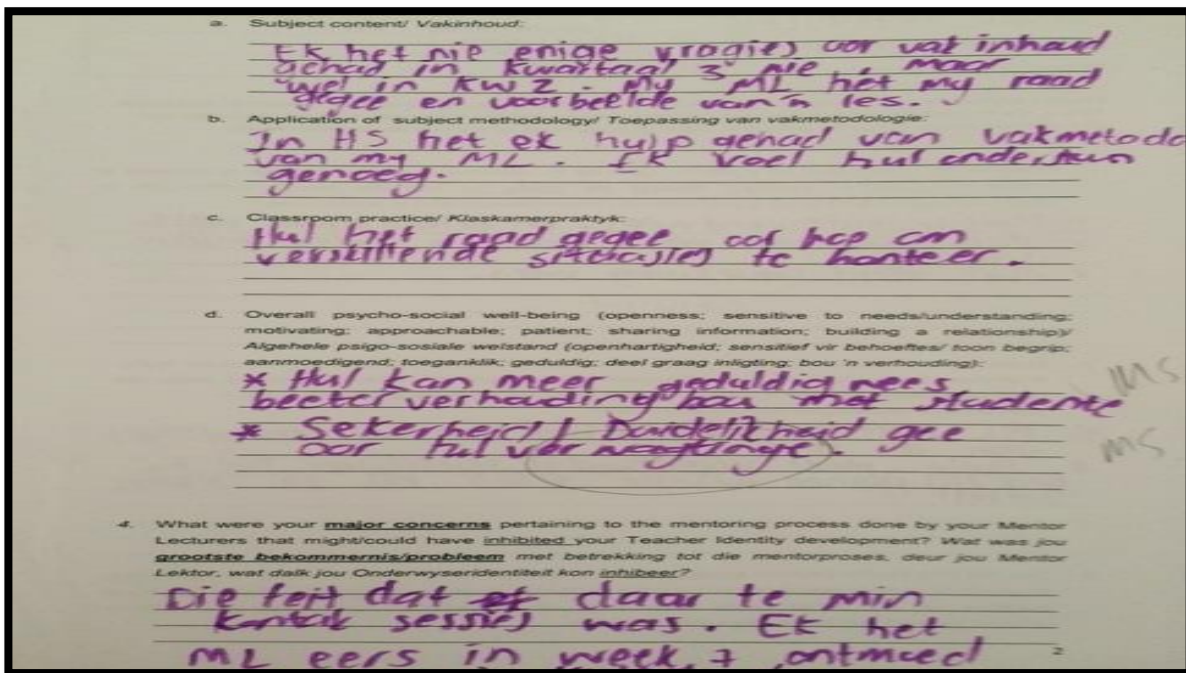 a. Subject content/ Vakinhoud:
Ek het nie enige vragies oor vak inhoud
gehad in Kwartaal 3 nie, maar
wel in KW 2. My ML het my raad
gegee en voorbeelde van 'n les.
b. Application of subject methodology/ Toepassing van vakmetodologie:
In HS het ek hulp gehad van vakmetodo
van my ML. Ek voel hul ondersteun
genoeg.
c. Classroom practice/ Klaskamerpraktyk:
Hul het raad gegee oor hoe om
verskillende situasies te hanteer.
d. Overall psycho-social well-being (openness; sensitive to needs/understanding;
motivating; approachable; patient; sharing information; building a relationship)/
Algehele psigo-sosiale welstand (openhartigheid; sensitief vir behoeftes/ toon begrip;
aanmoedigend; toeganklik; geduldig; deel graag inligting; bou 'n verhouding):
* Hul kan meer geduldig wees,
beeter verhouding bou met studente MS
* Sekerheid / Duidelikheid gee
oor hul verwagtinge. MS
4. What were your major concerns pertaining to the mentoring process done by your Mentor
Lecturers that might/could have inhibited your Teacher Identity development? Wat was jou
grootste bekommernis/probleem met betrekking tot die mentorproses, deur jou Mentor
Lektor, wat dalk jou Onderwyseridentiteit kon inhibeer?
Die feit dat daar te min
kontak sessies was. Ek het
ML eers in week 7 ontmoed
2